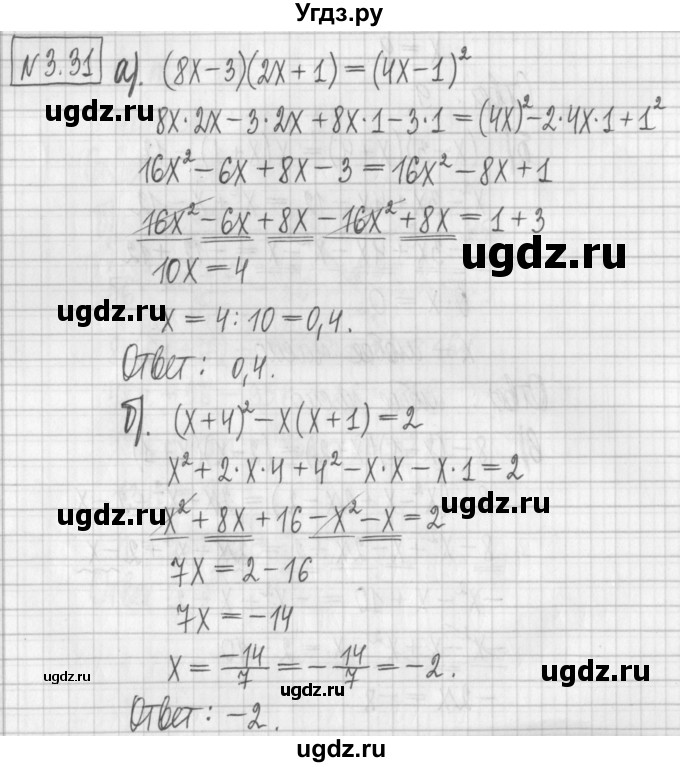 Угдз.ру
N 3.31 а). (8x-3)(2x+1)=(4x-1)²
ugdz.ru
8x·2x-3·2x+8x·1-3·1=(4x)²-2·4x·1+1²
ugdz.ru
16x²-6x+8x-3=16x²-8x+1
16x²-6x+8x-16x²+8x=1+3
ugdz.ru
10x=4
ugdz.ru
x=4:10=0,4.
Ответ: 0,4.
ugdz.ru
б). (x+4)²-x(x+1)=2
x²+2·x·4+4²-x·x-x·1=2
ugdz.ru
x²+8x+16-x²-x=2
ugdz.ru
7x=2-16
7x=-14
x=\frac{-14}{7}=-\frac{14}{7}=-2.
ugdz.ru
ugdz.ru
ugdz.ru
Ответ: -2.
ugdz.ru